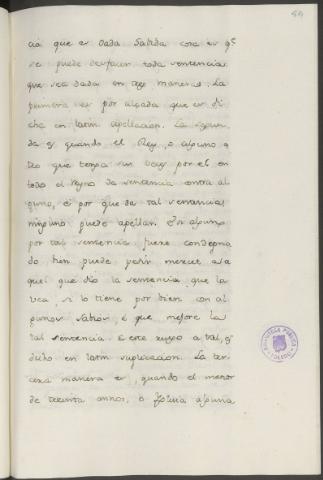 59
cia que es dada Sabida cosa es qe
se puede desfacer toda sentencia
que sea dada en tres maneras. La
primera es por alzada que es di
cha en latin apellacion. La segun
da es quando el Rey, o alguno o
tro que tenga sus veces por el en
todo el Reyno da sentencia contra al
guno, e por que de tal sentencia
ninguno puede apellar. Si alguno
por tal sentencia fuere condegna
do bien puede pedir mercet a a
quel que dio la sentencia que la
vea, si lo tiene por bien con al
gunos sabios, e que mejore la
tal sentencia e este ruego a tal, es
dicho en latin suplicacion. La ter
cera manera es, quando el menor
de veinte annos, o Iglesia alguna
BIBLIOTECA PUBLICA
TOLEDO